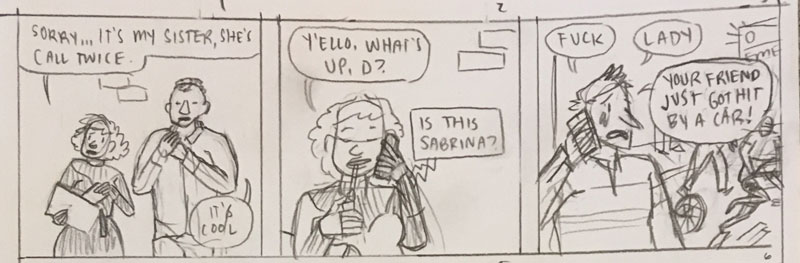 1
2
3
SORRY... IT'S MY SISTER, SHE'S
CALL TWICE.
IT'S
COOL
Y'ELLO, WHAT'S
UP, D?
IS THIS
SABRINA?
FUCK
LADY
YOUR FRIEND
JUST GOT HIT
BY A CAR!
EME
6